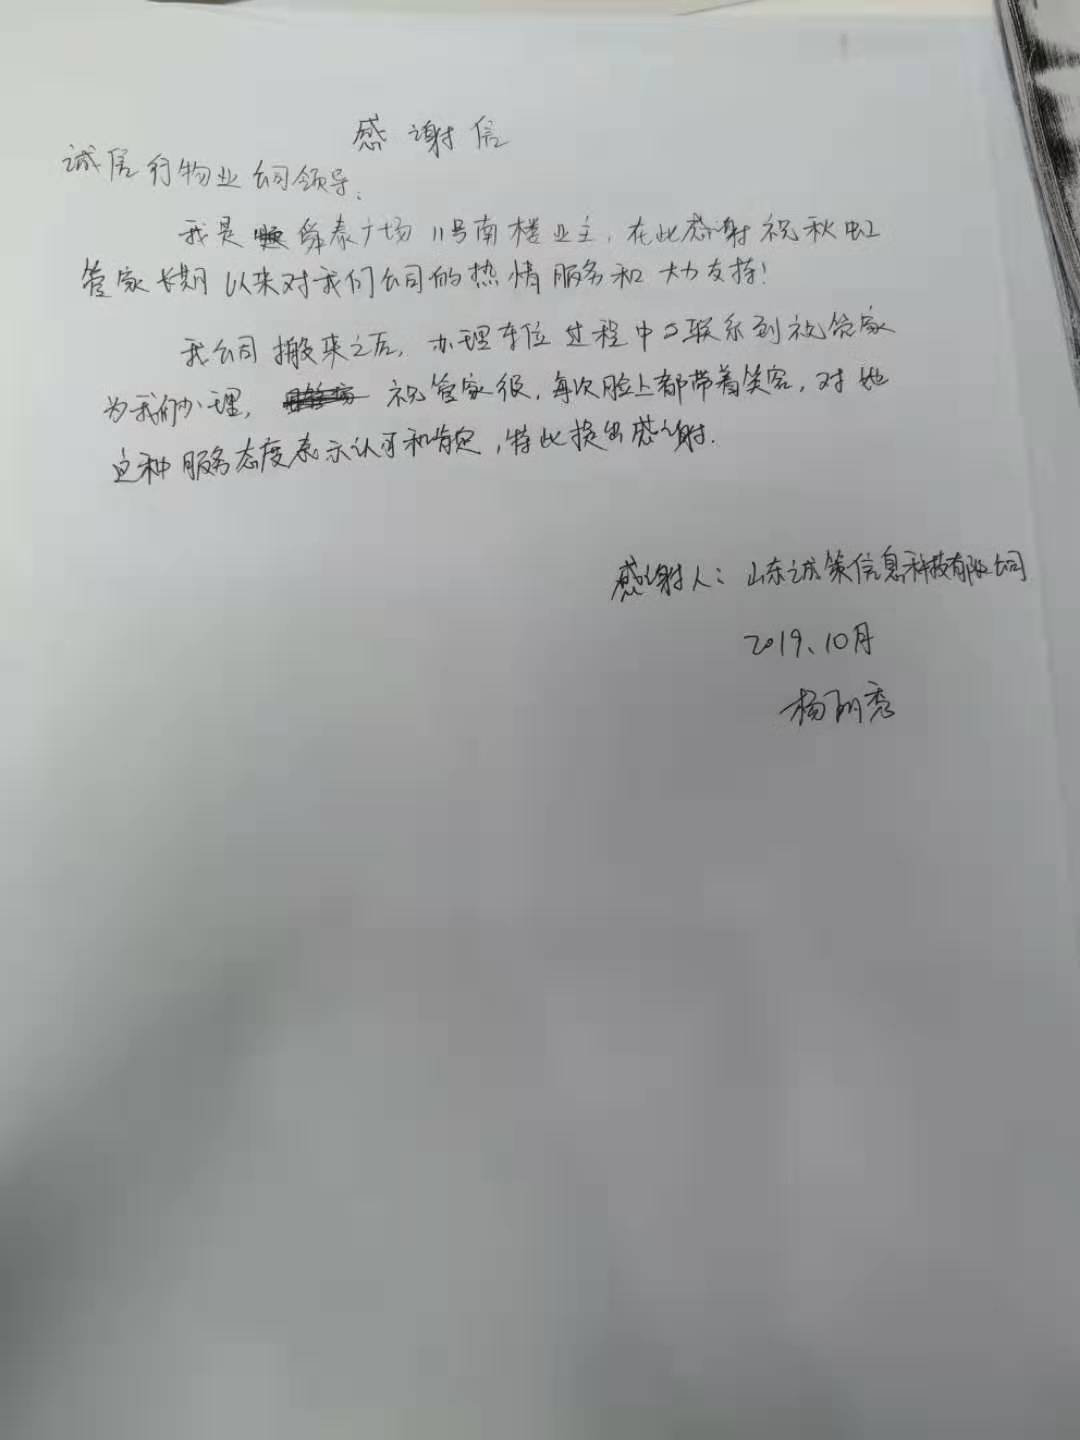 感谢信
诚信行物业公司领导.
我是舜泰广场11号南楼业主,在此感谢祝秋虹
管家长期以来对我们公司的热情服务和大力支持!
我公司搬来之后,办理车位过程中联系到祝管家
为我们办理, 祝管家很,每次脸上都带着笑容,对她
这种服务态度表示认可和肯定,特此提出感谢.
感谢人:山东诚策信息科技有限公司
2019、10月
杨丽秀